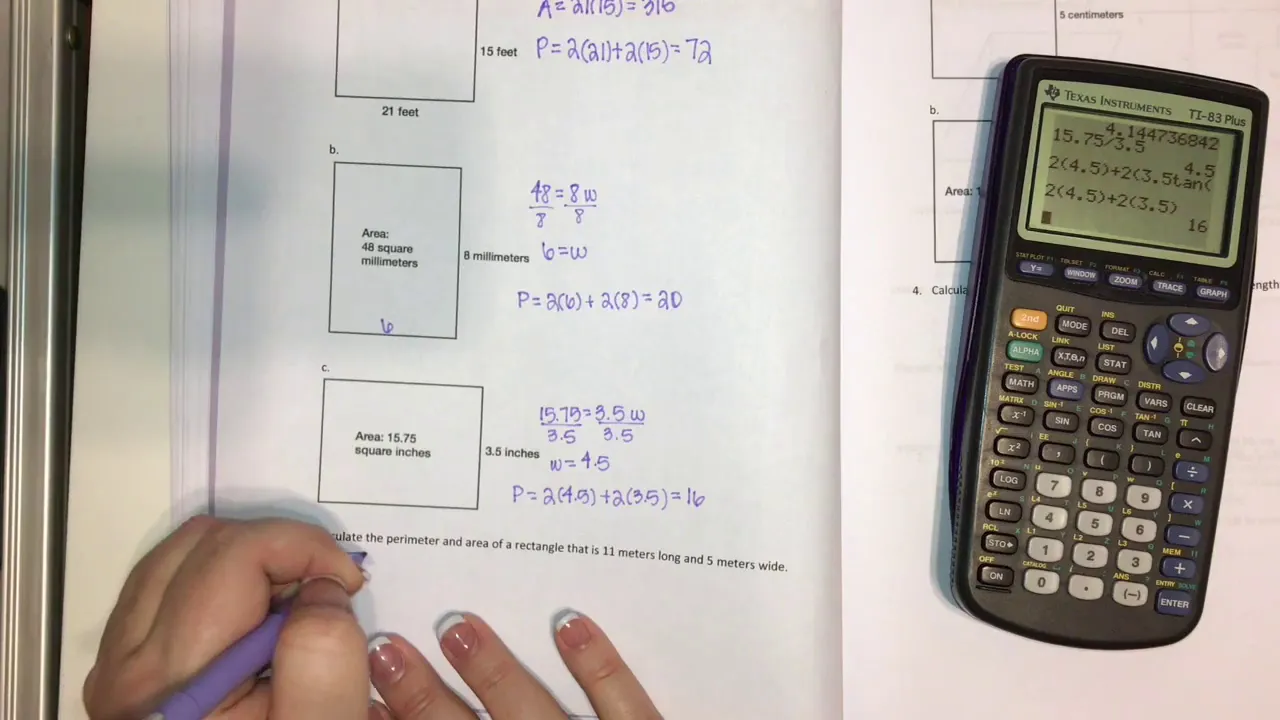 A = 21(15) = 315
5 centimeters
15 feet
P = 2(21)+2(15) = 72
21 feet
b.
48 = 8w
8 8
Area:
48 square
millimeters
8 millimeters
6 = w
P = 2(6) + 2(8) = 20
6
c.
15.75 = 3.5 w
3.5 3.5
Area: 15.75
square inches
3.5 inches
w = 4.5
P = 2(4.5) + 2(3.5) = 16
culate the perimeter and area of a rectangle that is 11 meters long and 5 meters wide.
b.
Area: 1
4. Calcula
ength
TEXAS INSTRUMENTS TI-83 Plus
4.144736842
15.75/3.5
4.5
2(4.5)+2(3.5tan(
2(4.5)+2(3.5)
16
STAT PLOT F1 TBLSET F2 FORMAT F3 CALC F4 TABLE F5
Y= WINDOW ZOOM TRACE GRAPH
QUIT INS
2nd MODE DEL
A-LOCK LINK LIST
ALPHA X,T,θ,n STAT
TEST A ANGLE B DRAW C DISTR
MATH APPS PRGM VARS CLEAR
MATRX D SIN⁻¹ E COS⁻¹ F TAN⁻¹ G π H
x⁻¹ SIN COS TAN ^
√ I EE J ( K ) L e M
x² , ( ) ÷
10ˣ N u O v P w Q [ R
LOG 7 8 9 ×
eˣ S L4 T L5 U L6 V ] W
LN 4 5 6 −
RCL X L1 Y L2 Z L3 θ MEM "
STO▸ 1 2 3 +
OFF CATALOG i ANS ? ENTRY SOLVE
ON 0 . (−) ENTER